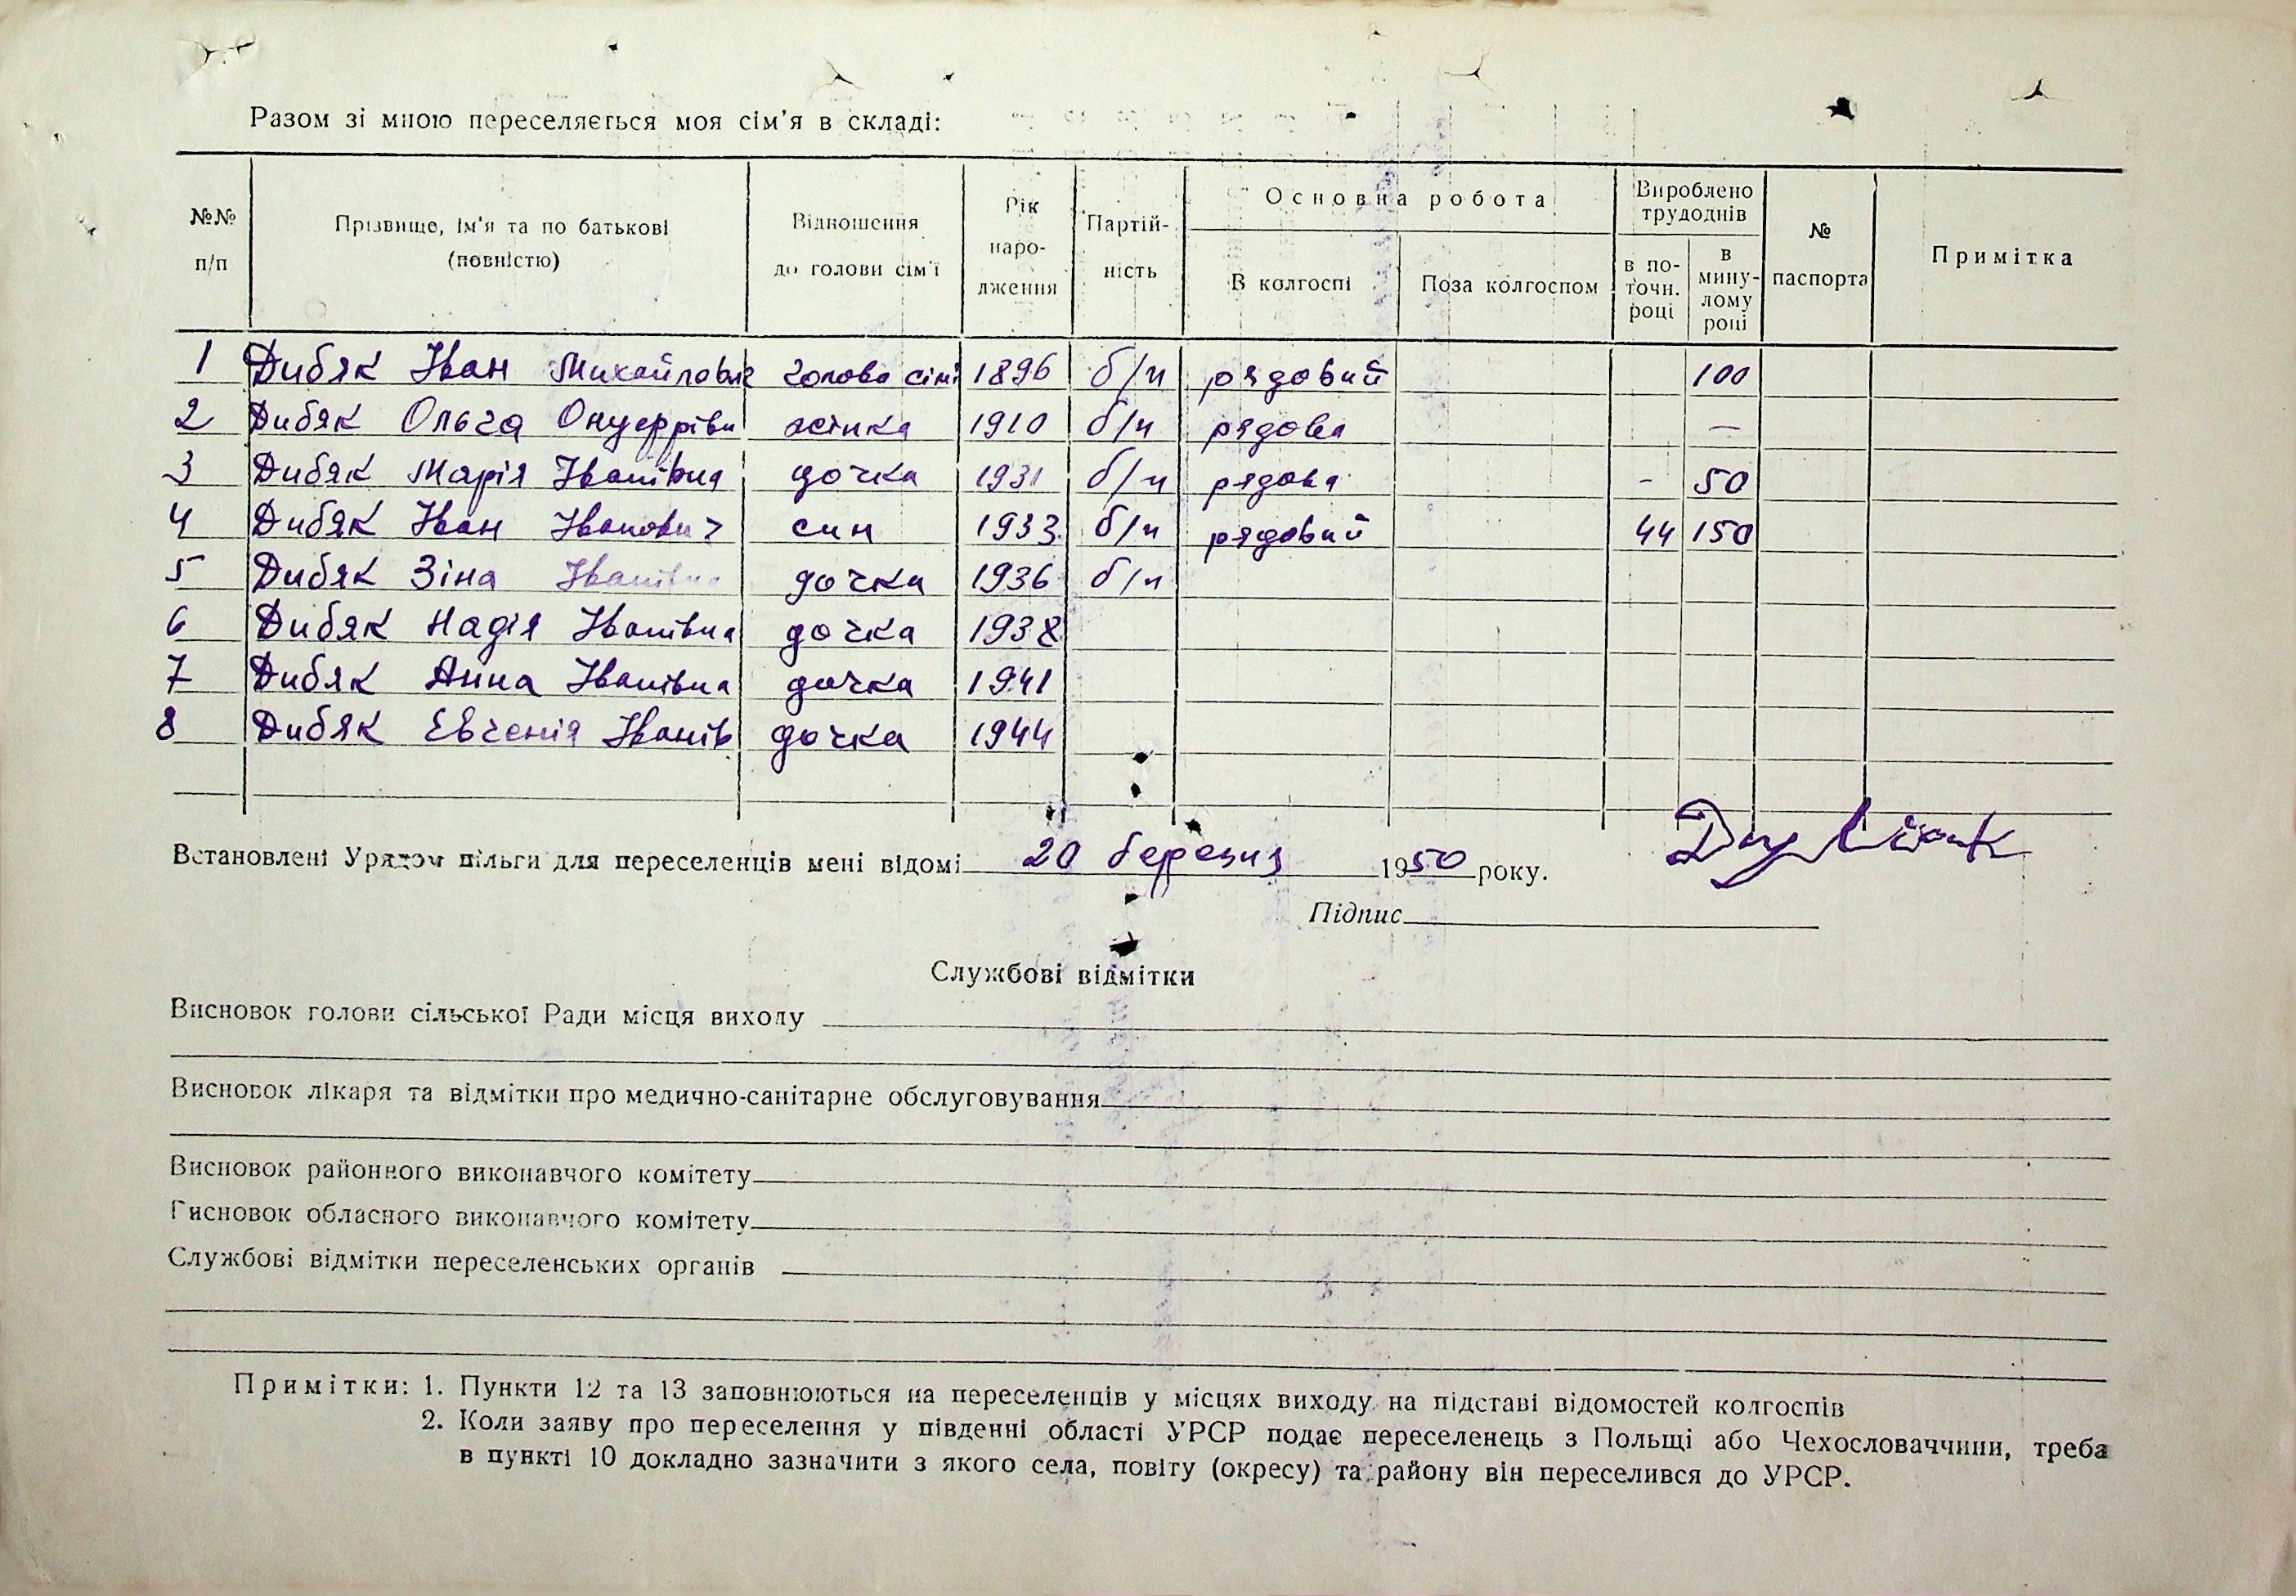 Разом зі мною переселяється моя сім'я в складі:
№№ п/п | Прізвище, ім'я та по батькові (повністю) | Відношення до голови сім'ї | Рік народження | Партійність | Основна робота | Вироблено трудоднів | № паспорта | Примітка
В колгоспі | Поза колгоспом | в поточн. році | в минулому році
1 Дибяк Іван Михайлович голова сімі 1896 б/п рядовий 100
2 Дибяк Ольга Онуфріівн жінка 1910 б/п рядова —
3 Дибяк Марія Іванівна дочка 1931 б/п рядова - 50
4 Дибяк Іван Іванович син 1933 б/п рядовий 44 150
5 Дибяк Зіна Іванівна дочка 1936 б/п
6 Дибяк Надія Іванівна дочка 1938
7 Дибяк Анна Іванівна дочка 1941
8 Дибяк Евгенія Іванів дочка 1944
Встановлені Урядом пільги для переселенців мені відомі 20 березня 1950 року.
Підпис
Службові відмітки
Висновок голови сільської Ради місця виходу
Висновок лікаря та відмітки про медично-санітарне обслуговування
Висновок районного виконавчого комітету
Висновок обласного виконавчого комітету
Службові відмітки переселенських органів
Примітки: 1. Пункти 12 та 13 заповнюються на переселенців у місцях виходу на підставі відомостей колгоспів
2. Коли заяву про переселення у південні області УРСР подає переселенець з Польщі або Чехословаччини, треба
в пункті 10 докладно зазначити з якого села, повіту (окресу) та району він переселився до УРСР.